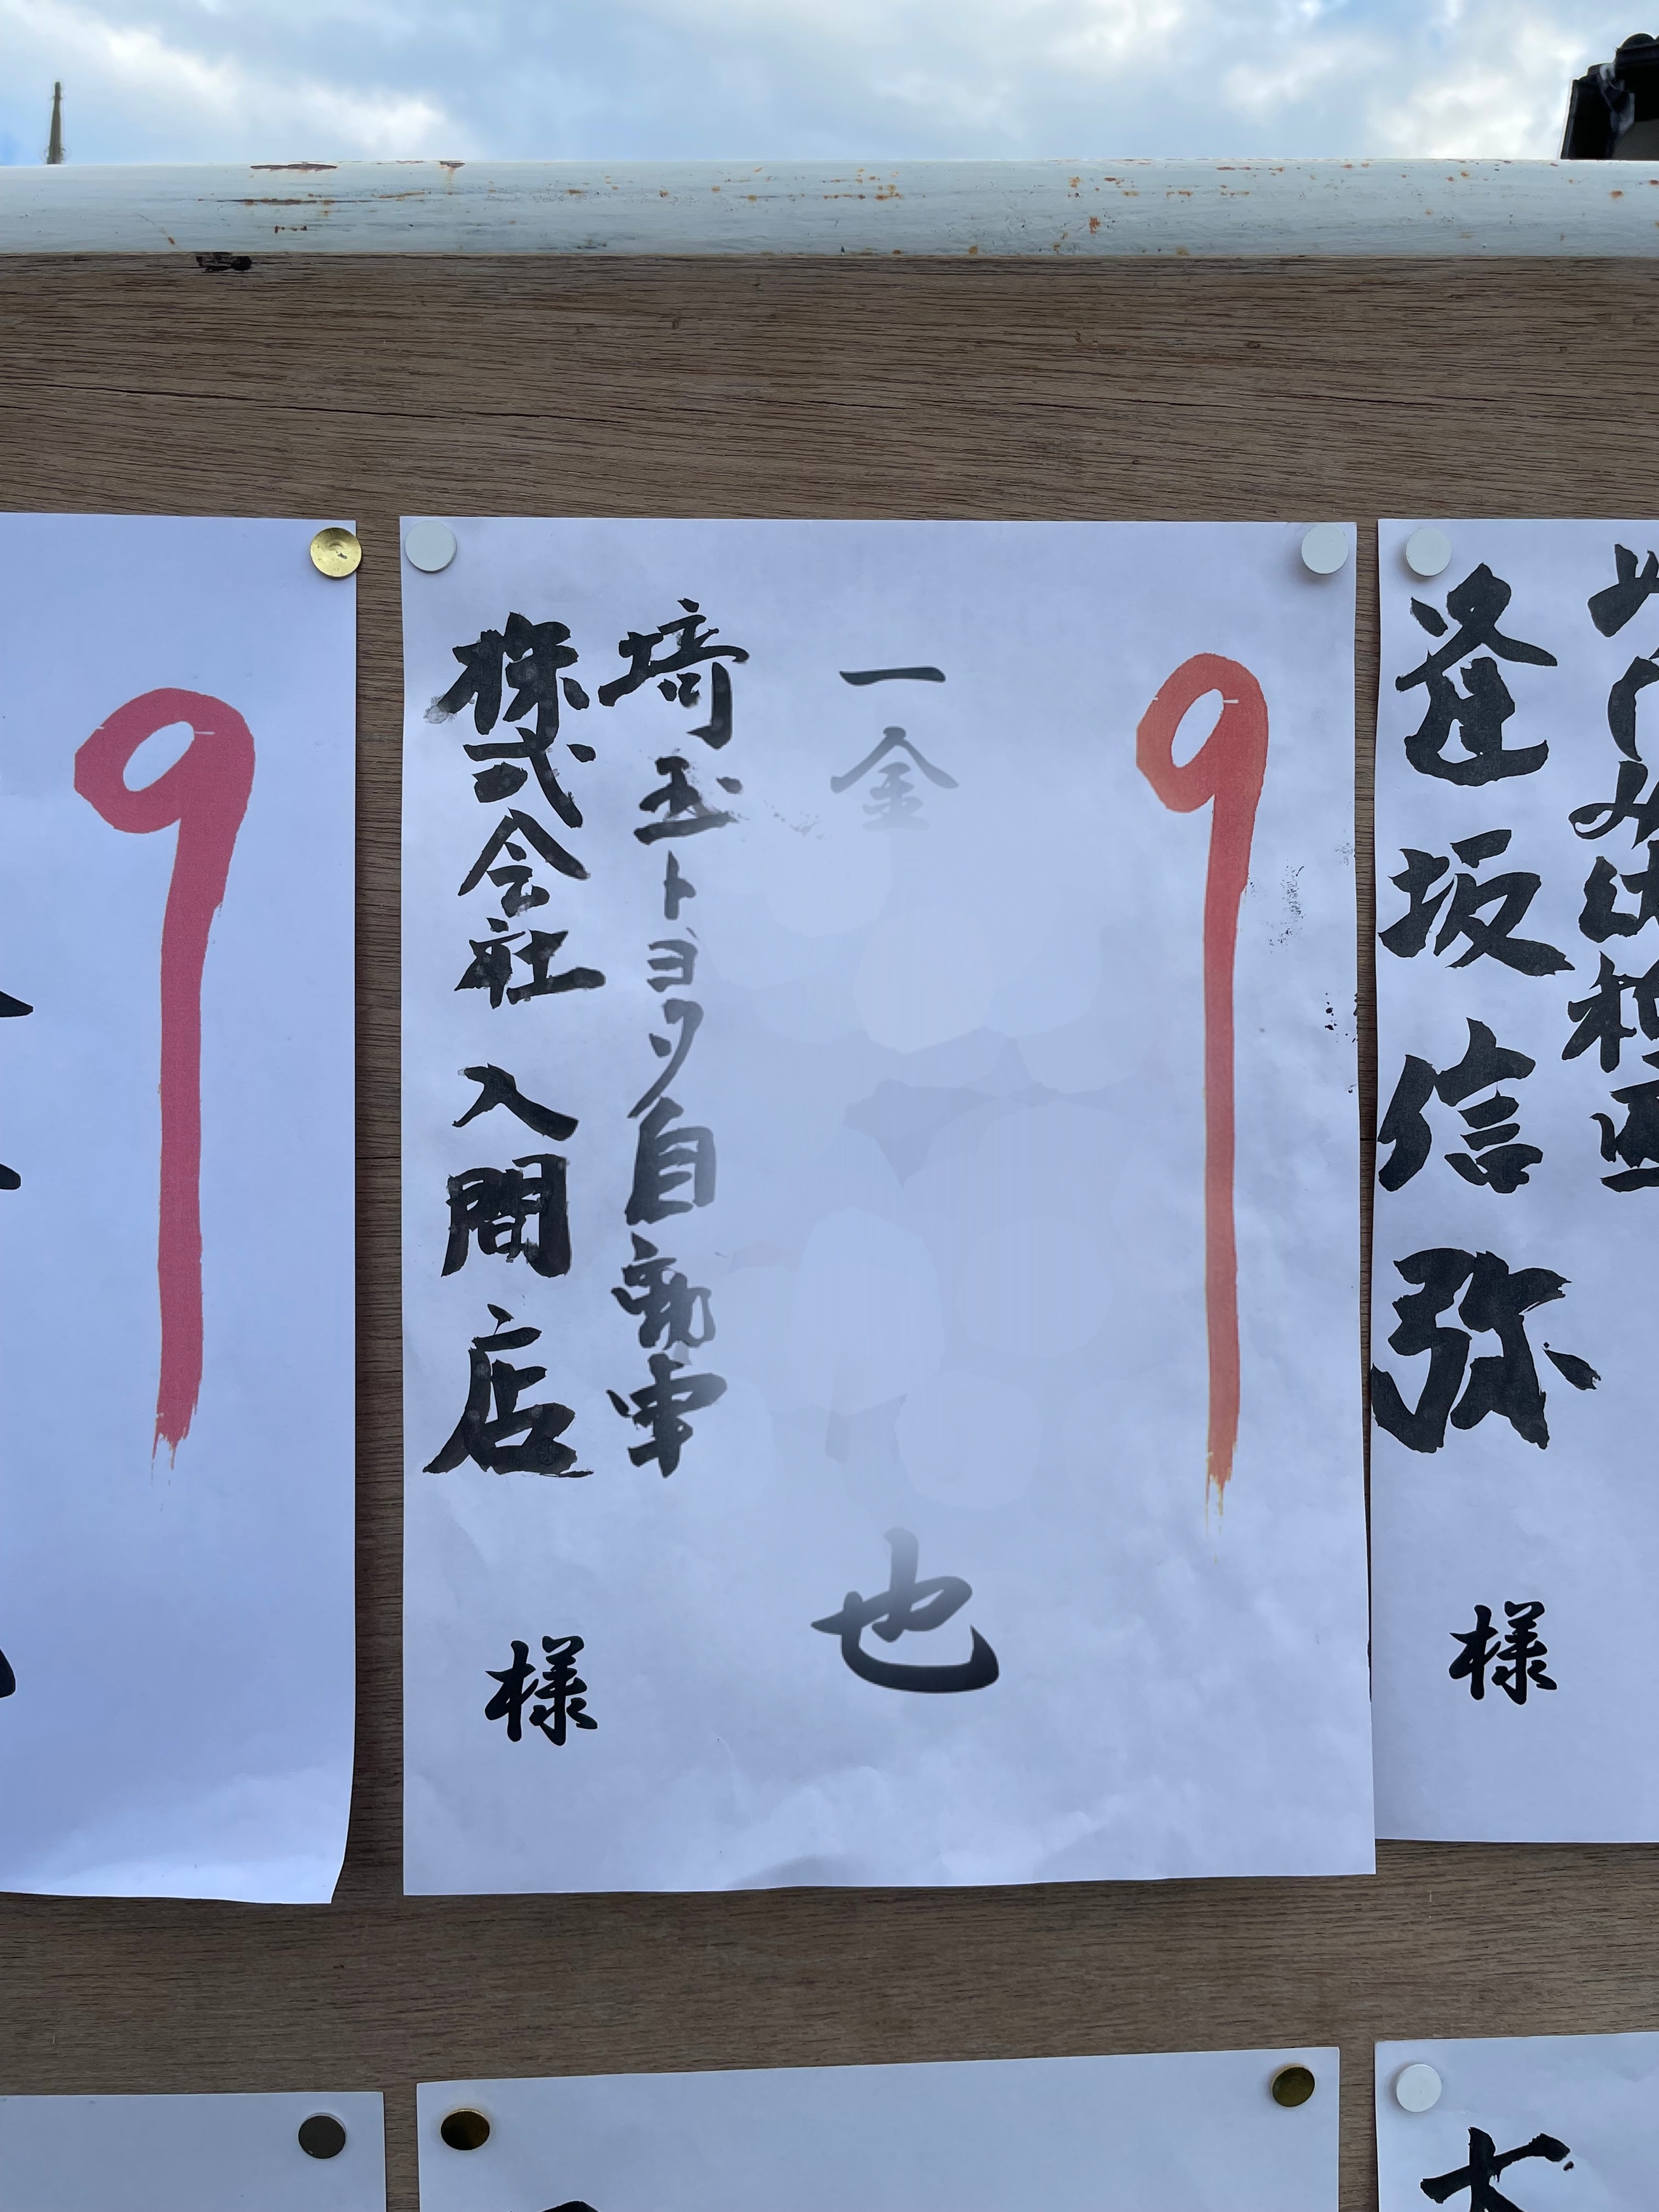 一金
也
埼玉トヨタ自動車
株式会社 入間店
様
逢坂信弥
様